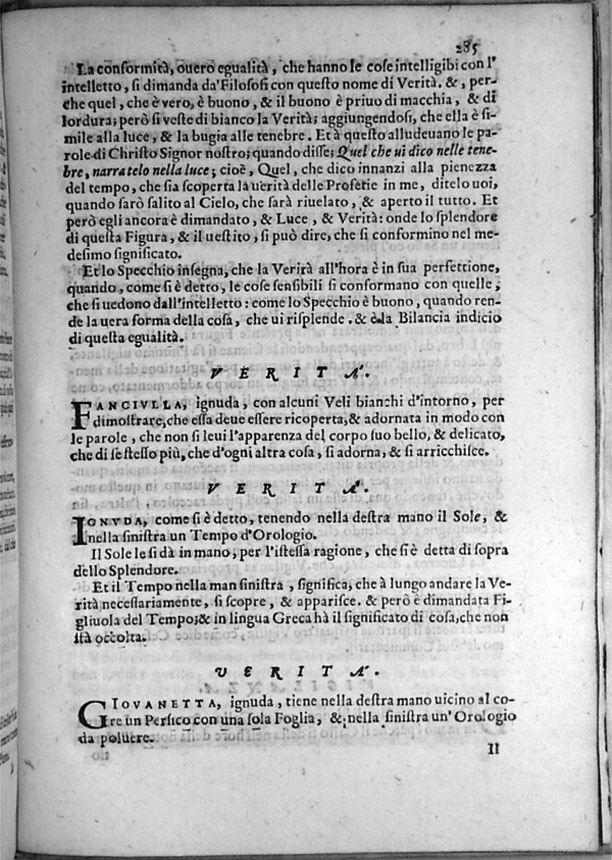 285
La conformità, ouero egualità, che hanno le cose intelligibi con l'
intelletto, si dimanda da'Filosofi con questo nome di Verità. &, per-
che quel, che è vero, è buono, & il buono è priuo di macchia, & di
lordura; però si veste di bianco la Verità; aggiungendosi, che ella è si-
mile alla luce, & la bugia alle tenebre. Et à questo alludeuano le pa-
role di Christo Signor nostro; quando disse; Quel che ui dico nelle tene-
bre, narratelo nella luce; cioè, Quel, che dico innanzi alla pienezza
del tempo, che sia scoperta la uerità delle Profetie in me, ditelo uoi,
quando sarò salito al Cielo, che sarà riuelato, & aperto il tutto. Et
però egli ancora è dimandato, & Luce, & Verità: onde lo splendore
di questa Figura, & il uestito, si può dire, che si conformino nel me-
desimo significato.
Et lo Specchio insegna, che la Verità all'hora è in sua perfettione,
quando, come si è detto, le cose sensibili si conformano con quelle,
che si uedono dall'intelletto: come lo Specchio è buono, quando ren-
de la uera forma della cosa, che ui risplende. & è la Bilancia indicio
di questa egualità.
VERITÀ.
FANCIVLLA, ignuda, con alcuni Veli bianchi d'intorno, per
dimostrare, che essa deue essere ricoperta, & adornata in modo con
le parole, che non si leui l'apparenza del corpo suo bello, & delicato,
che di se stesso più, che d'ogni altra cosa, si adorna, & si arricchisce.
VERITÀ.
IGNVDA, come si è detto, tenendo nella destra mano il Sole, &
nella sinistra un Tempo d'Orologio.
Il Sole le si dà in mano, per l'istessa ragione, che si è detta di sopra
dello Splendore.
Et il Tempo nella man sinistra, significa, che à lungo andare la Ve-
rità necessariamente, si scopre, & apparisce. & però è dimandata Fi-
gliuola del Tempo; & in lingua Greca hà il significato di cosa, che non
stà occolta.
VERITÀ.
GIOVANETTA, ignuda, tiene nella destra mano uicino al co-
re un Persico con una sola Foglia, & nella sinistra un'Orologio
da poluere.
Il